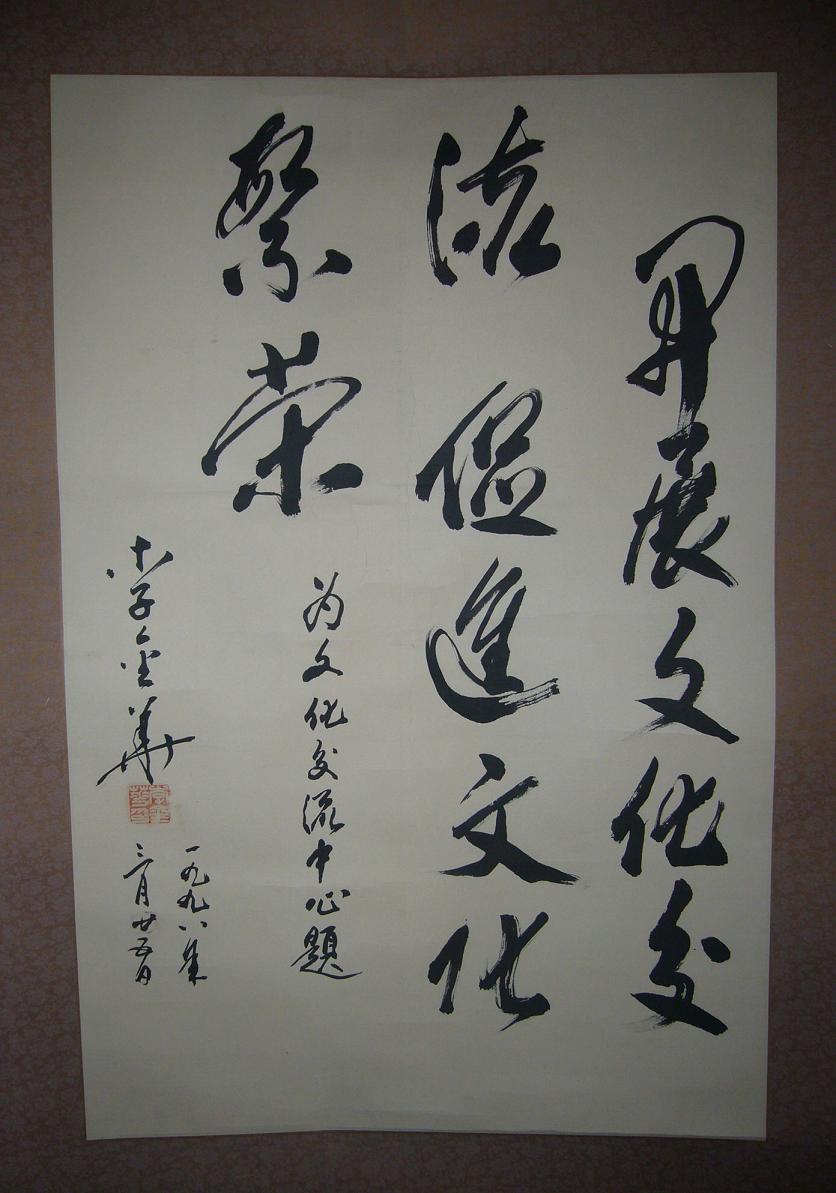 開展文化交
流 促進文化
繁荣
为文化交流中心題
李金華
一九九八年
三月廿五日